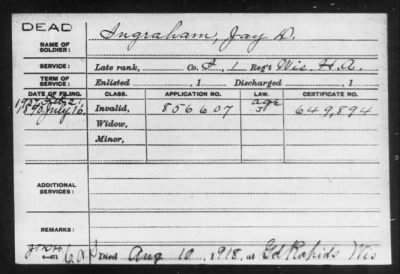 DEAD
NAME OF SOLDIER: Ingraham, Jay D.
SERVICE: Late rank, Co. I, 1 Reg't Wis. H.A.
TERM OF SERVICE: Enlisted , 1 Discharged , 1
DATE OF FILING. CLASS. APPLICATION NO. LAW. CERTIFICATE NO.
age
July 16 Invalid, 856607 649,894
Widow,
Minor,
ADDITIONAL SERVICES:
REMARKS:
Died Aug 10, 1918, at Gd Rapids Wis